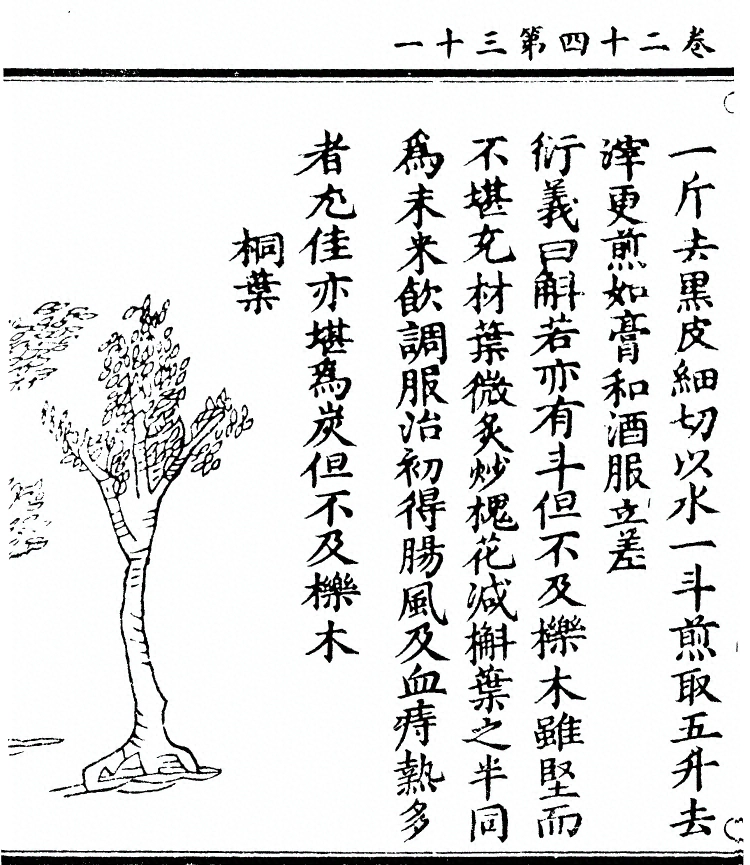 卷二十四第三十一
一斤去黑皮細切以水一斗煎取五升去
滓更煎如膏和酒服立差
衍義曰斛若亦有斗但不及櫟木雖堅而
不堪充材葉微炙炒槐花減槲葉之半同
為末米飲調服治初得腸風及血痔熱多
者尤佳亦堪為炭但不及櫟木
桐葉